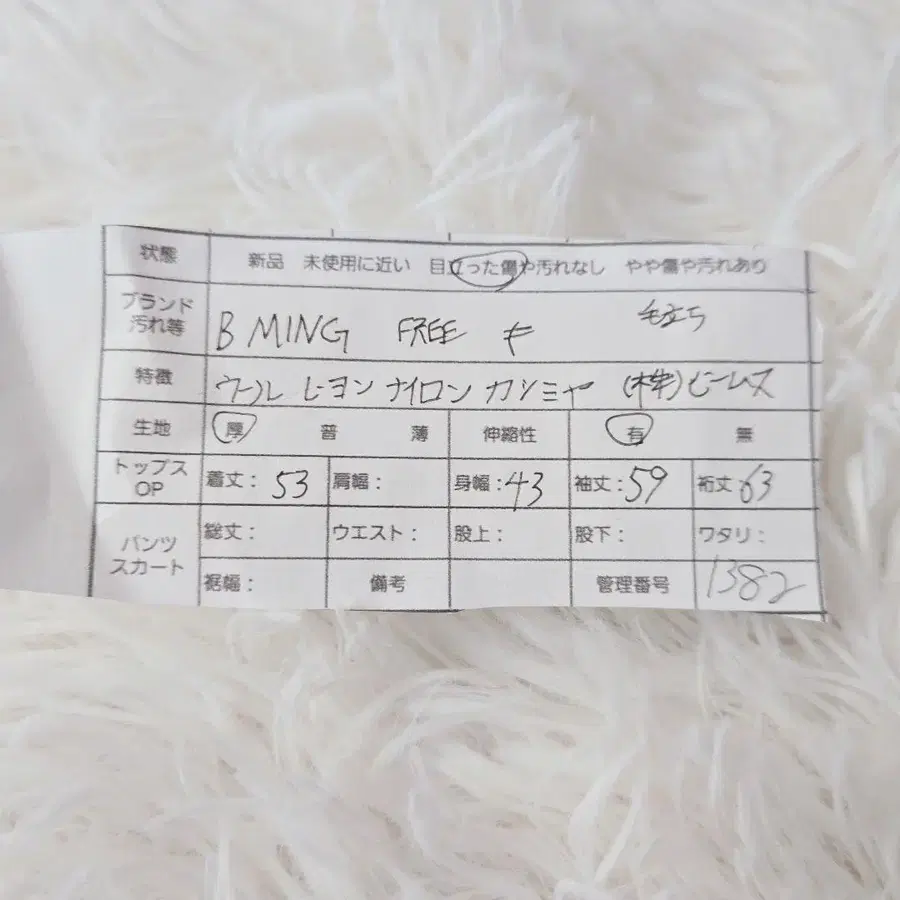 状態 新品 未使用に近い 目立った傷や汚れなし やや傷や汚れあり
ブランド
汚れ等 B MING FREE 毛立ち
特徴 ウール レーヨン ナイロン カシミヤ (株)ビームス
生地 厚 普 薄 伸縮性 有 無
トップス
OP 着丈: 53 肩幅: 身幅: 43 袖丈: 59 裄丈: 63
パンツ
スカート
総丈: ウエスト: 股上: 股下: ワタリ:
裾幅: 備考 管理番号 1382